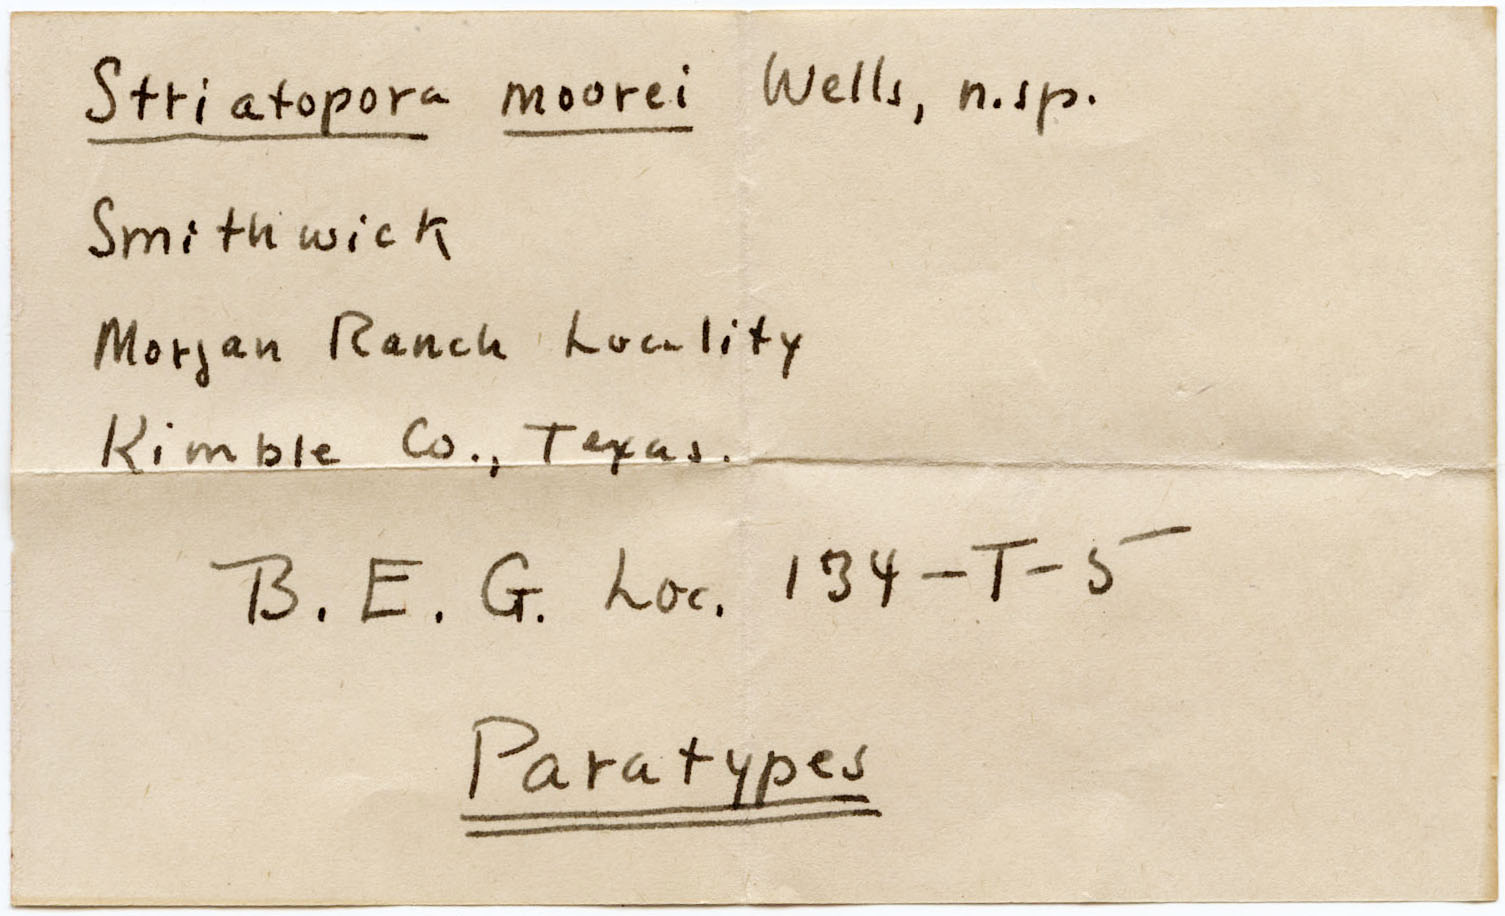 Striatopora moorei Wells, n.sp.
Smithwick
Morgan Ranch Locality
Kimble Co., Texas.
B. E. G. Loc. 134-T-5
Paratypes